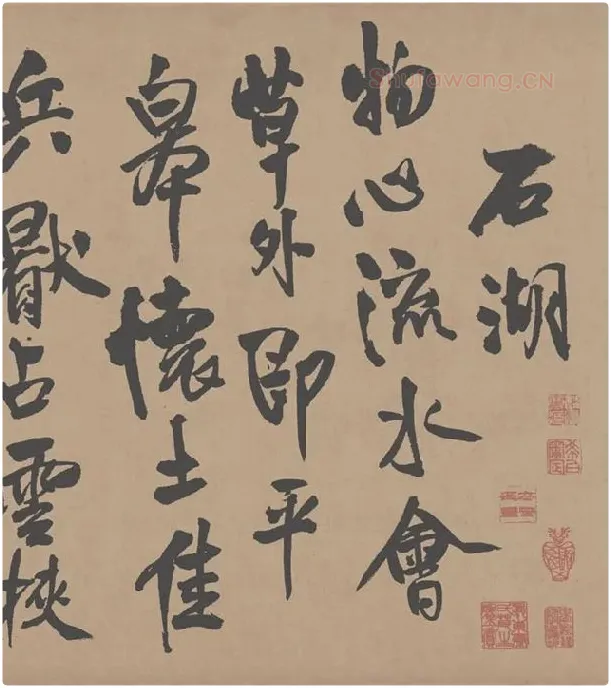 石湖
物心流水會
草外即平
皋懷土佳
兵猒占雲挾
Shufawang.CN